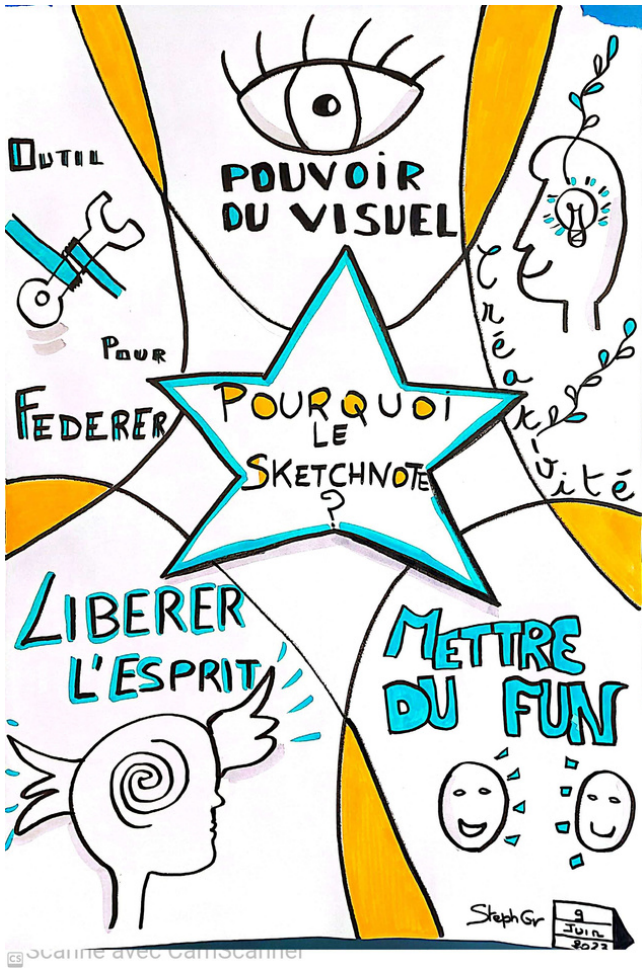 POUVOIR
DU VISUEL
OUTIL
POUR
FEDERER
Créativité
POURQUOI
LE
SKETCHNOTE
?
LIBERER
L'ESPRIT
METTRE
DU FUN
StephGr
9
Juin
2023
CS Scanné avec CamScanner